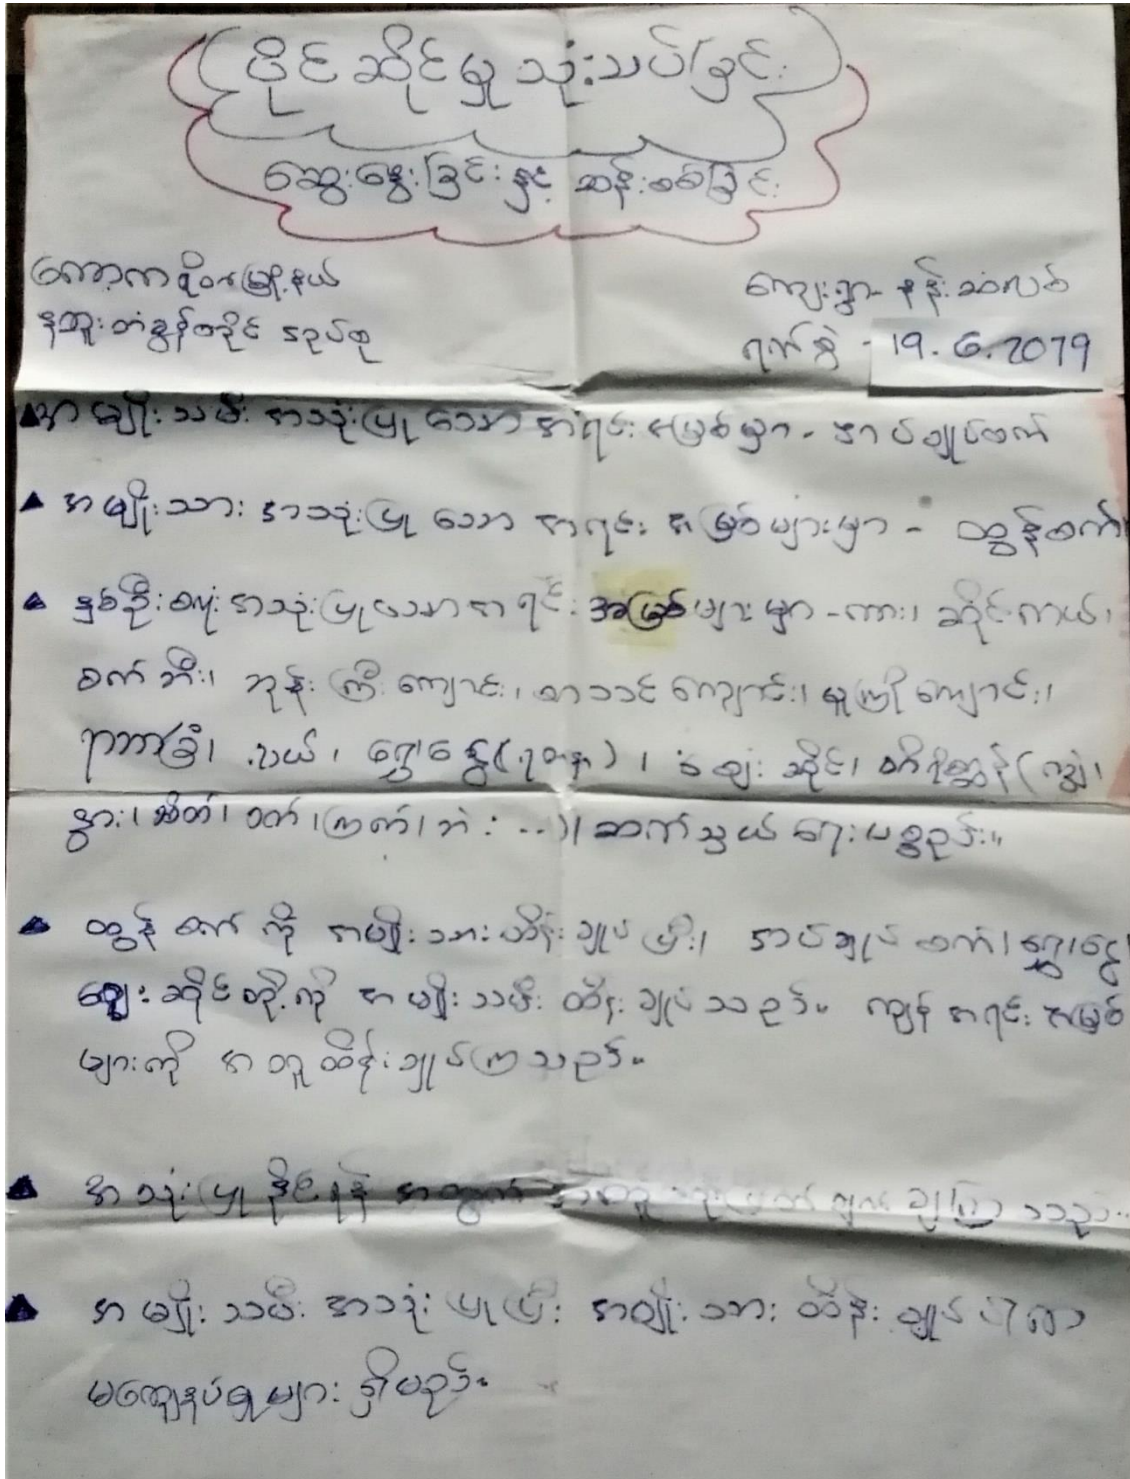 ပိုင်ဆိုင်မှု သုံးသပ်ခြင်း
ဆွေးနွေးခြင်းနှင့် ဆန်းစစ်ခြင်း
ကော့ကရိတ်မြို့နယ်
ကျေးရွာ-
တံခွန်တိုင် အုပ်စု
ရက်စွဲ - 19.6.2019
▲ အမျိုးသမီး အသုံးပြုသော အရင်းအမြစ်မှာ - အပ်ချုပ်စက်
▲ အမျိုးသား အသုံးပြုသော အရင်းအမြစ်များမှာ - ထွန်စက်
▲ နှစ်ဦးစလုံး အသုံးပြုသော အရင်းအမြစ်များမှာ - ကား၊ ဆိုင်ကယ်၊
စက်ဘီး၊ ဘုန်းကြီးကျောင်း၊ စာသင်ကျောင်း၊ မူကြိုကျောင်း၊
ရာဘာခြံ၊ လယ်၊ ရွှေ၊ငွေ(ရတနာ)၊ ဈေးဆိုင်၊ တိရိစ္ဆာန်(ကျွဲ၊
နွား၊ ဆိတ်၊ ဝက်၊ ကြက်၊ ဘဲ . . .)၊ ဆက်သွယ်ရေးပစ္စည်း။
▲ ထွန်စက်ကို အမျိုးသား ထိန်းချုပ်ပြီး၊ အပ်ချုပ်စက်၊ ရွှေ၊ငွေ
ဈေးဆိုင်တို့ကို အမျိုးသမီး ထိန်းချုပ်သည်။ ကျန်အရင်းအမြစ်
များကို အတူထိန်းချုပ်ကြသည်။
▲ အသုံးပြုနိုင်ရန် အတွက် အတူ ဆုံးဖြတ်ချက် ချကြသည်။
▲ အမျိုးသမီး အသုံးပြုပြီး အမျိုးသား ထိန်းချုပ်ပါက
မကျေနပ်မှုများ ရှိမည်။